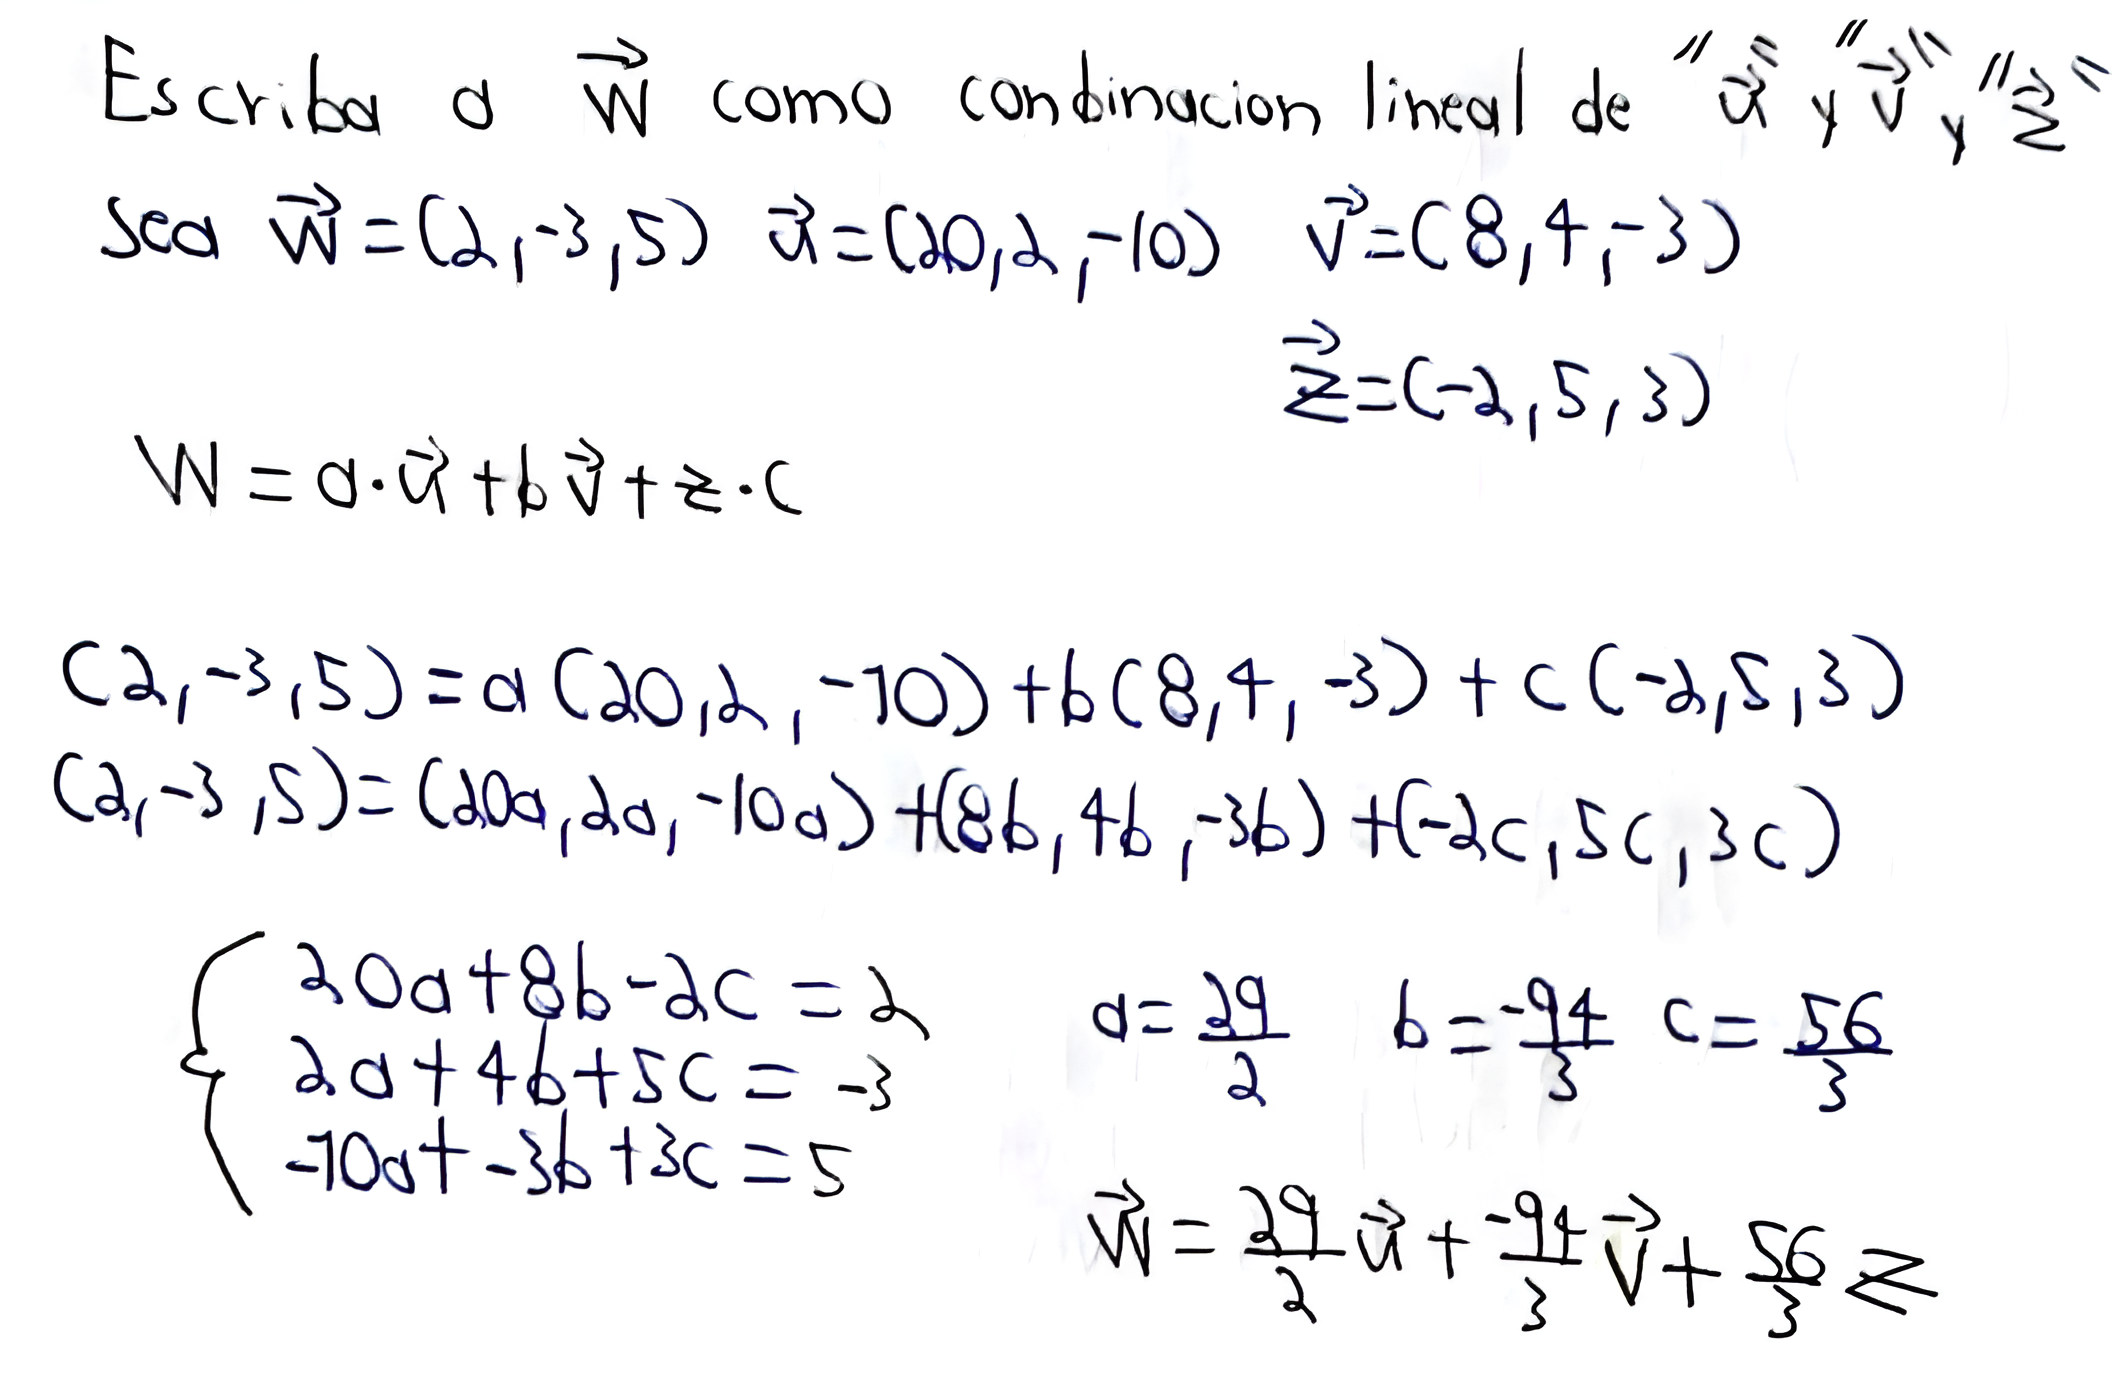 Escriba a w⃗ como conbinacion lineal de "u⃗" y "v⃗" y "z⃗"
sea w⃗=(2,-3,5) u⃗=(20,2,-10) v⃗=(8,4,-3)
z⃗=(-2,5,3)
W=a·u⃗+bv⃗+z·c
(2,-3,5)=a(20,2,-10)+b(8,4,-3)+c(-2,5,3)
(2,-3,5)=(20a,2a,-10a)+(8b,4b,-3b)+(-2c,5c,3c)
20a+8b-2c=2 a=29/2 b=-94/3 c=56/3
2a+4b+5c=-3
-10a+-3b+3c=5
w⃗=29/2 u⃗+-94/3 v⃗+56/3 z